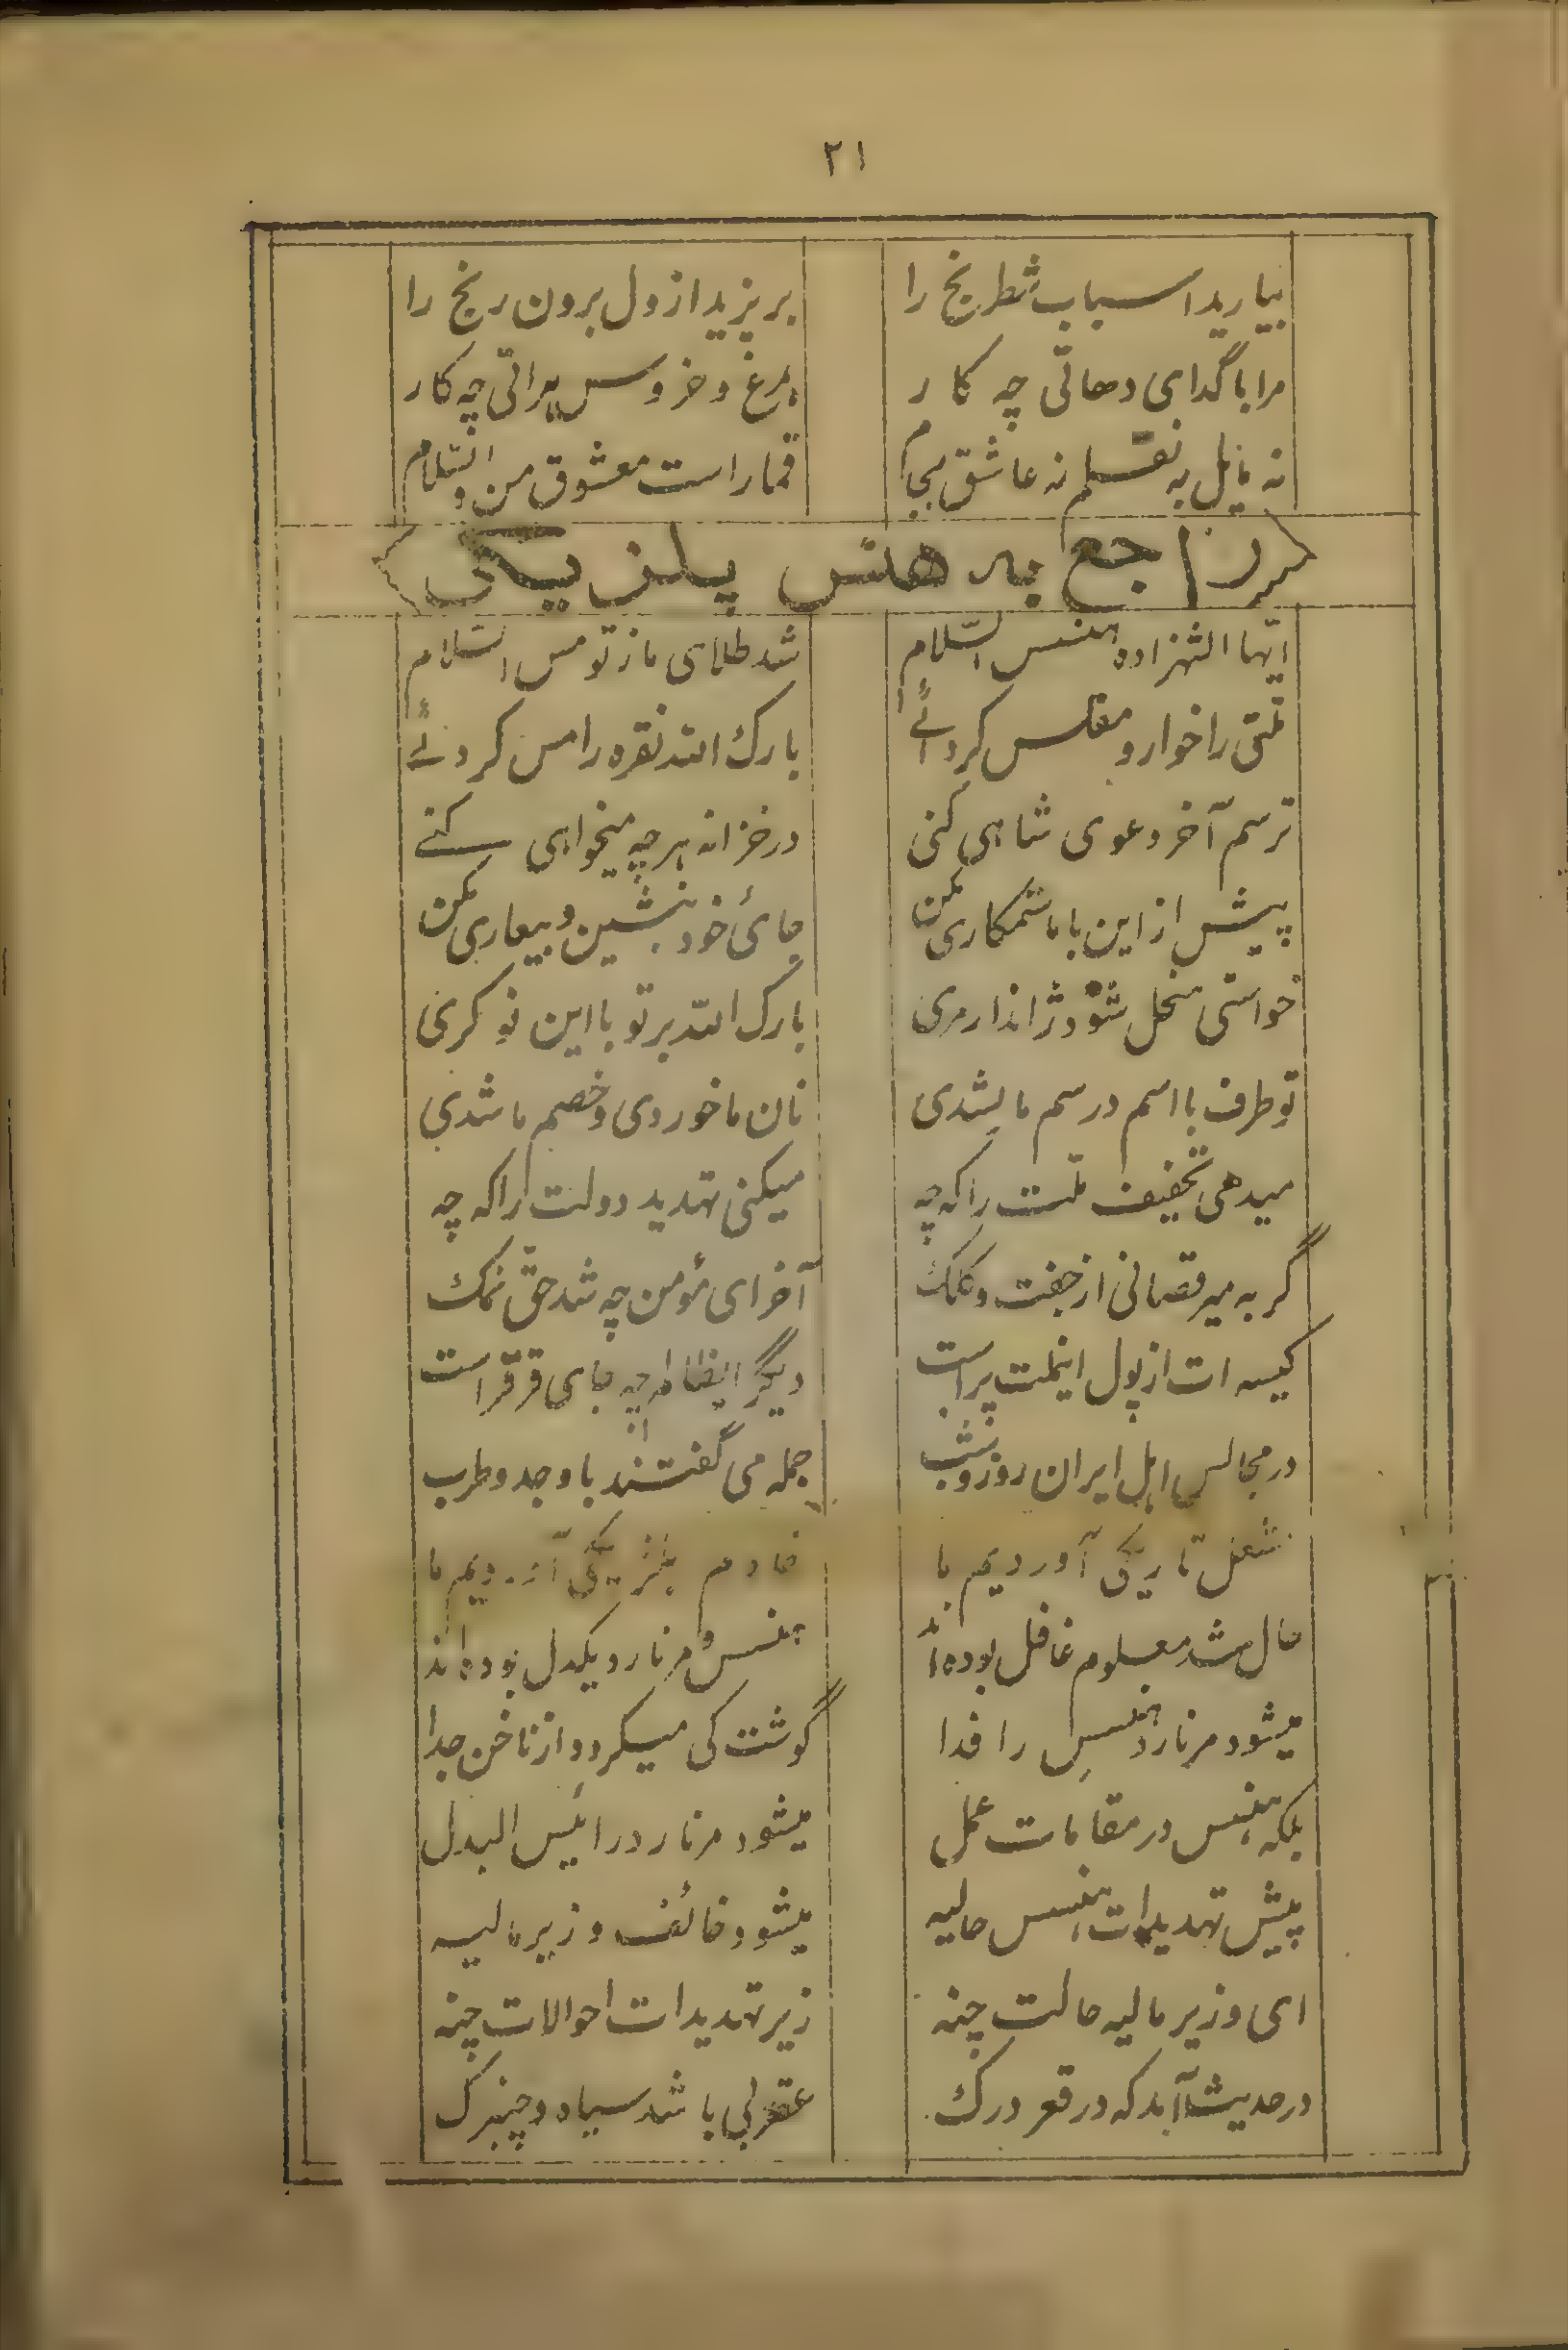 ۲۱
بیارید اسباب شطرنج را	بریزید از دل برون رنج را
مرا با گدای دهاتی چه کار	بمرغ و خروس براتی چه کار
نه مایل به نقلم نه عاشق بجام	قمار است معشوق من والسّلام
راجع به هنس بلژیکی
ایّها الشهزاده هنس السّلام	شد طلای ما ز تو مس السّلام
ملّتی را خوار و مفلس کرده‌ئی	بارک الله نقره را مس کرده‌ئی
ترسم آخر دعوی شاهی کنی	در خزانه هر چه میخواهی کنی
پیش از این با ما ستمکاری مکن	جای خود بنشین و بیعاری مکن
خواستی منحل شود ژاندارمری	بارک الله بر تو با این نوکری
تو طرف با اسم و رسم ما شدی	نان ما خوردی و خصم ما شدی
میدهی تخفیف ملّت را که چه	میکنی تهدید دولت را که چه
گربه میرقصانی از جفت و کلک	آخر ای مؤمن چه شد حقّ نمک
کیسه ات از پول اینملت پر است	دیگر اینجا چه جای قرقر است
در مجالس اهل ایران روز و شب	جمله می گفتند با وجد و طرب
آوردیم ما	خادم بلژیکی آوردیم ما
حال شد معلوم غافل بوده‌اند	هنس و مرنارد یکدل بوده‌اند
میشود مرنارد هنس را فدا	گوشت کی میگردد از ناخن جدا
بلکه هنس در مقامات عمل	میشود مرنارد را بئس البدل
پیش تهدیدات هنس حالیه	میشود خائف وزیر مالیه
ای وزیر مالیه حالت چنه	زیر تهدیدات احوالات چنه
در حدیث آمد که در قعر درک	عقربی باشد سیاه و